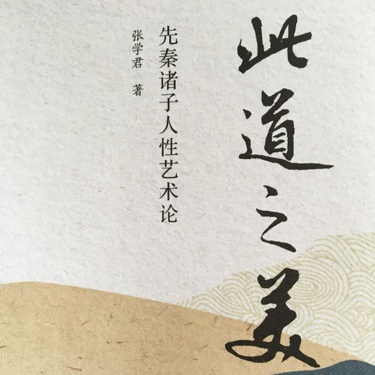 此道之美
先秦诸子人性艺术论
张学君 著